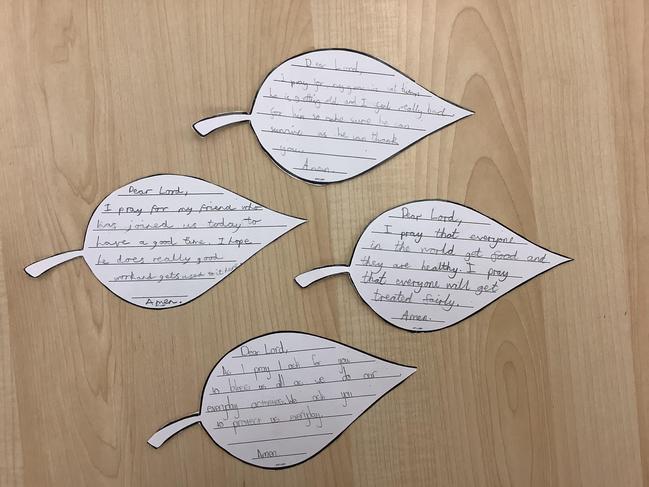 Dear Lord,
I pray for my
he is getting old and I feel really bad
for him so make sure he can
survive as he can thank
you.
Amen.
Dear Lord,
I pray for my friend who
has joined us today to
have a good time. I hope
he does really good
work and gets used to it here
Amen.
Dear Lord,
I pray that everyone
in the world get food and
they are healthy. I pray
that everyone will get
treated fairly.
Amen.
Dear Lord,
As I pray I ask for you
to bless us all as we do our
everyday activities. We ask you
to protect us everyday.
Amen